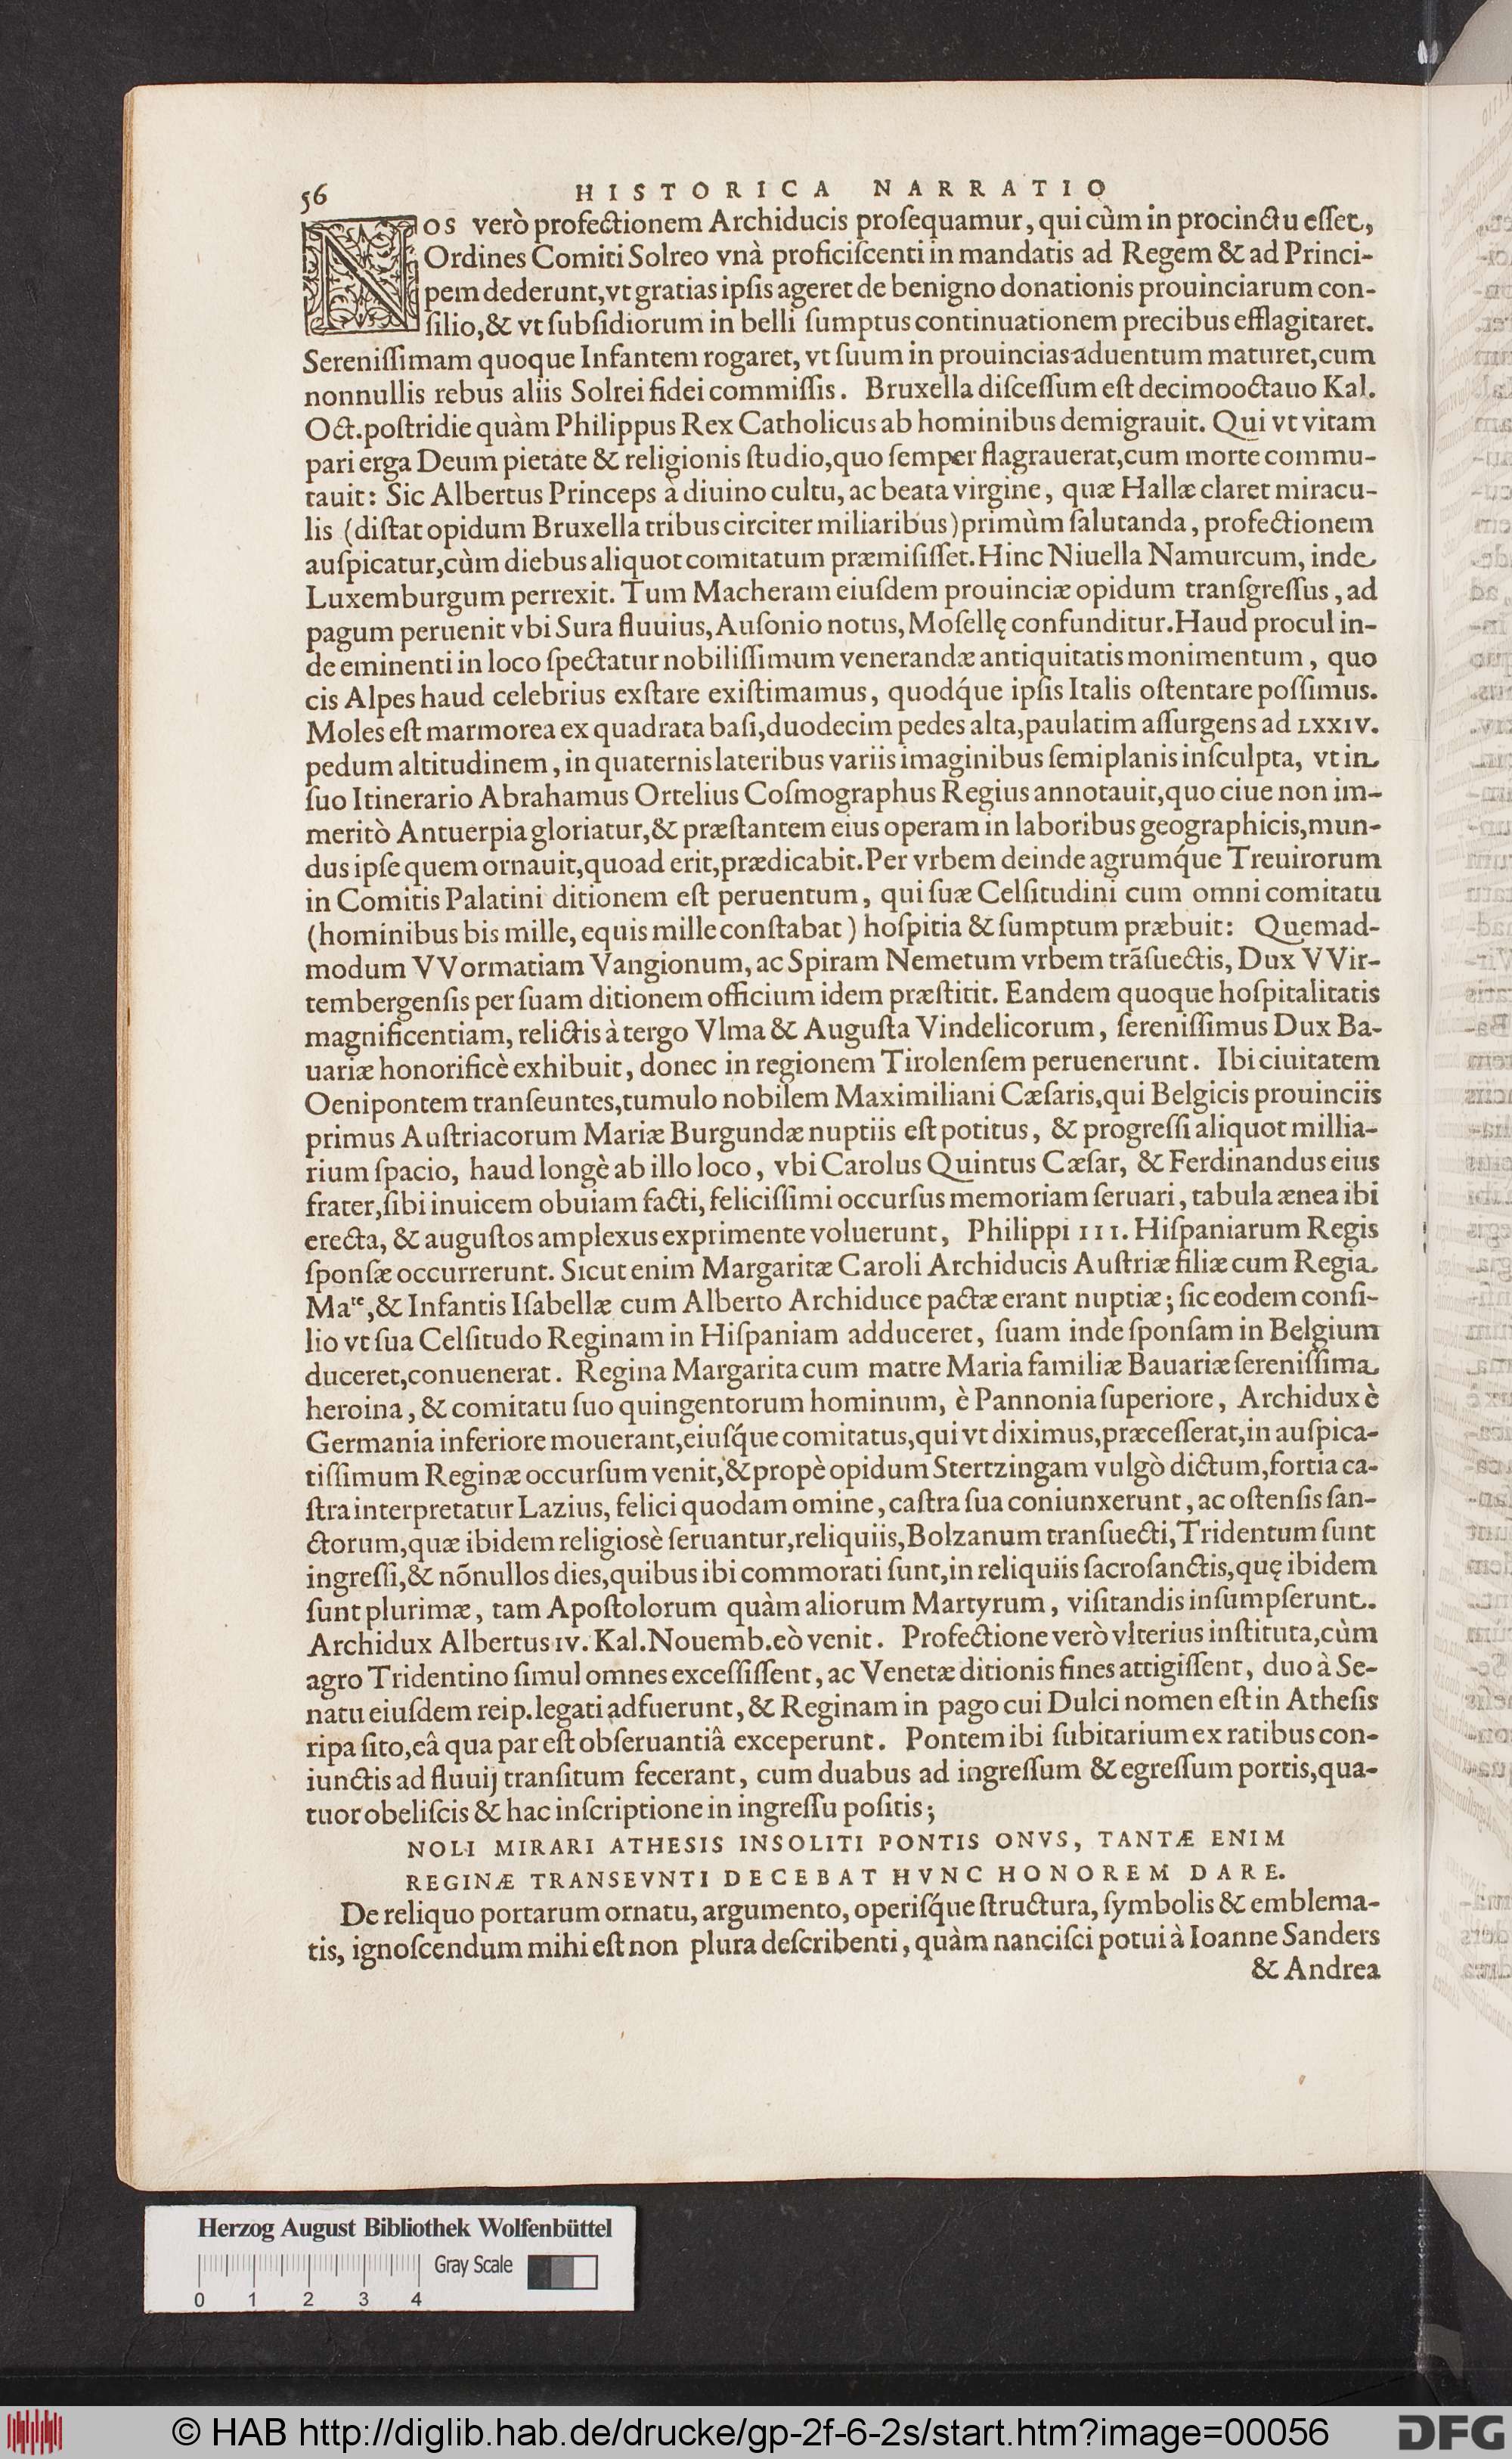 56 HISTORICA NARRATIO
NOS verò profectionem Archiducis proſequamur, qui cùm in procinctu eſſet,
Ordines Comiti Solreo vnà proficiſcenti in mandatis ad Regem & ad Princi-
pem dederunt, vt gratias ipſis ageret de benigno donationis prouinciarum con-
ſilio, & vt ſubſidiorum in belli ſumptus continuationem precibus efflagitaret.
Sereniſſimam quoque Infantem rogaret, vt ſuum in prouincias aduentum maturet, cum
nonnullis rebus aliis Solrei fidei commiſſis. Bruxella diſceſſum eſt decimooctauo Kal.
Oct. poſtridie quàm Philippus Rex Catholicus ab hominibus demigrauit. Qui vt vitam
pari erga Deum pietate & religionis ſtudio, quo ſemper flagrauerat, cum morte commu-
tauit: Sic Albertus Princeps à diuino cultu, ac beata virgine, quæ Hallæ claret miracu-
lis (diſtat opidum Bruxella tribus circiter miliaribus) primùm ſalutanda, profectionem
auſpicatur, cùm diebus aliquot comitatum præmiſiſſet. Hinc Niuella Namurcum, inde
Luxemburgum perrexit. Tum Macheram eiuſdem prouinciæ opidum tranſgreſſus, ad
pagum peruenit vbi Sura fluuius, Auſonio notus, Moſellę confunditur. Haud procul in-
de eminenti in loco ſpectatur nobiliſſimum venerandæ antiquitatis monimentum, quo
cis Alpes haud celebrius exſtare exiſtimamus, quodq́ue ipſis Italis oſtentare poſſimus.
Moles eſt marmorea ex quadrata baſi, duodecim pedes alta, paulatim aſſurgens ad LXXIV.
pedum altitudinem, in quaternis lateribus variis imaginibus ſemiplanis inſculpta, vt in
ſuo Itinerario Abrahamus Ortelius Coſmographus Regius annotauit, quo ciue non im-
meritò Antuerpia gloriatur, & præſtantem eius operam in laboribus geographicis, mun-
dus ipſe quem ornauit, quoad erit, prædicabit. Per vrbem deinde agrumq́ue Treuirorum
in Comitis Palatini ditionem eſt peruentum, qui ſuæ Celſitudini cum omni comitatu
(hominibus bis mille, equis mille conſtabat) hoſpitia & ſumptum præbuit: Quemad-
modum VVormatiam Vangionum, ac Spiram Nemetum vrbem trãſuectis, Dux VVir-
tembergenſis per ſuam ditionem officium idem præſtitit. Eandem quoque hoſpitalitatis
magnificentiam, relictis à tergo Vlma & Auguſta Vindelicorum, ſereniſſimus Dux Ba-
uariæ honorificè exhibuit, donec in regionem Tirolenſem peruenerunt. Ibi ciuitatem
Oenipontem tranſeuntes, tumulo nobilem Maximiliani Cæſaris, qui Belgicis prouinciis
primus Auſtriacorum Mariæ Burgundæ nuptiis eſt potitus, & progreſſi aliquot millia-
rium ſpacio, haud longè ab illo loco, vbi Carolus Quintus Cæſar, & Ferdinandus eius
frater, ſibi inuicem obuiam facti, feliciſſimi occurſus memoriam ſeruari, tabula ænea ibi
erecta, & auguſtos amplexus exprimente voluerunt, Philippi III. Hiſpaniarum Regis
ſponſæ occurrerunt. Sicut enim Margaritæ Caroli Archiducis Auſtriæ filiæ cum Regia
Maᵗᵉ, & Infantis Iſabellæ cum Alberto Archiduce pactæ erant nuptiæ; ſic eodem conſi-
lio vt ſua Celſitudo Reginam in Hiſpaniam adduceret, ſuam inde ſponſam in Belgium
duceret, conuenerat. Regina Margarita cum matre Maria familiæ Bauariæ ſereniſſima
heroina, & comitatu ſuo quingentorum hominum, è Pannonia ſuperiore, Archidux è
Germania inferiore mouerant, eiuſq́ue comitatus, qui vt diximus, præceſſerat, in auſpica-
tiſſimum Reginæ occurſum venit, & propè opidum Stertzingam vulgò dictum, fortia ca-
ſtra interpretatur Lazius, felici quodam omine, caſtra ſua coniunxerunt, ac oſtenſis ſan-
ctorum, quæ ibidem religiosè ſeruantur, reliquiis, Bolzanum tranſuecti, Tridentum ſunt
ingreſſi, & nõnullos dies, quibus ibi commorati ſunt, in reliquiis ſacroſanctis, quę ibidem
ſunt plurimæ, tam Apoſtolorum quàm aliorum Martyrum, viſitandis inſumpſerunt.
Archidux Albertus IV. Kal. Nouemb. eò venit. Profectione verò vlterius inſtituta, cùm
agro Tridentino ſimul omnes exceſſiſſent, ac Venetæ ditionis fines attigiſſent, duo à Se-
natu eiuſdem reip. legati adfuerunt, & Reginam in pago cui Dulci nomen eſt in Atheſis
ripa ſito, eâ qua par eſt obſeruantiâ exceperunt. Pontem ibi ſubitarium ex ratibus con-
iunctis ad fluuij tranſitum fecerant, cum duabus ad ingreſſum & egreſſum portis, qua-
tuor obeliſcis & hac inſcriptione in ingreſſu poſitis;
NOLI MIRARI ATHESIS INSOLITI PONTIS ONVS, TANTÆ ENIM
REGINÆ TRANSEVNTI DECEBAT HVNC HONOREM DARE.
De reliquo portarum ornatu, argumento, operiſq́ue ſtructura, ſymbolis & emblema-
tis, ignoſcendum mihi eſt non plura deſcribenti, quàm nanciſci potui à Ioanne Sanders
& Andrea
Herzog August Bibliothek Wolfenbüttel
Gray Scale
0 1 2 3 4
© HAB http://diglib.hab.de/drucke/gp-2f-6-2s/start.htm?image=00056
DFG